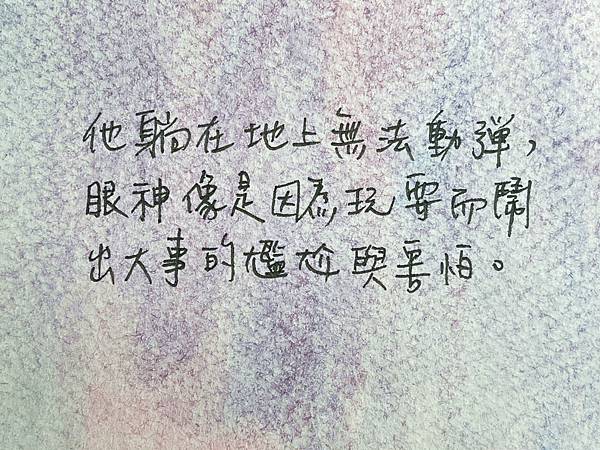 他躺在地上無法動彈，
眼神像是因為玩耍而鬧
出大事的尷尬與害怕。